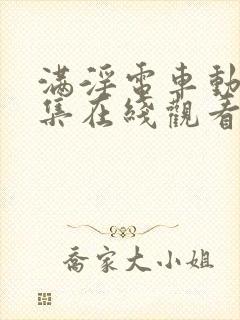 满淫電車動
集在綫觀看
喬家大小姐